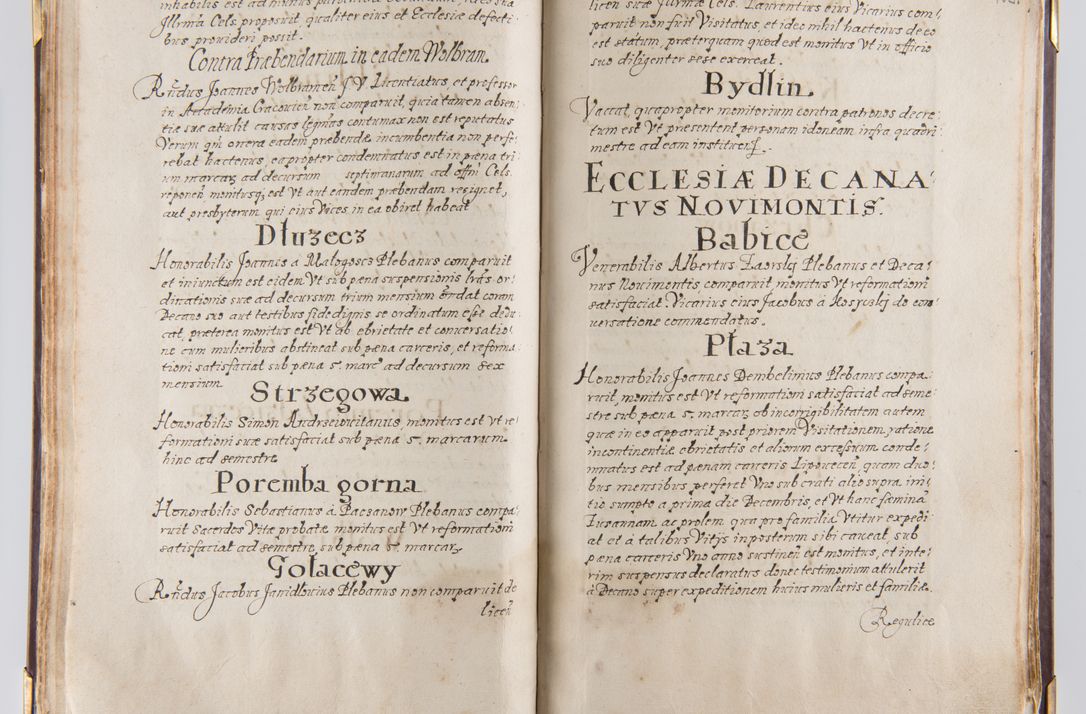 Illrma Cels. proposuit, qualiter eius et Ecclesiæ defecti:
bus prouideri possit.
Contra Præbendarium in eadem Wolbram.
Rñdus Joannes Wolbramen J V Licentiatus, et professor
in Academia Cracouien non comparuit, quia tamen absen:
tiæ suæ attulit causas legimas contumax non est reputatus
Verum qm onera eadem præbendæ incumbentia non perfe:
rebat hactenus, eapropter condemnatus est in pæna tri:
um marcarz ad decursum septimanarum ad offm Cels.
reponen, monitusqz est Vt aut eandem præbendam resignet,
aut presbyterum qui eius Vices in ea obiret habeat
Dłużecz
Honorabilis Joannes a Małogoscz Plebanus comparuit
et iniunctum est eidem Vt sub pæna suspensionis lras or:
dinationis suæ ad decursum trium mensium ondat coram
Decano suo aut testibus fide dignis se ordinatum esse dedu:
cat, præterea monitus est Vt ab ebrietate et conuersatio:
ne cum mulieribus abstineat sub pæna carceris, et reforma:
tioni satisfaciat sub pæna 5. marc ad decursum sex
mensium
Strzegowa
Honorabilis Simon Andrzeiouitanus, monitus est Vt re:
formationi suæ satisfaciat sub pæna 5. marcarum
hinc ad semestre
Poremba gorna
Honorabilis Sebastianus à Paczanow Plebanus compa:
ruit Sacerdos Vitæ probatæ monitus est Vt reformationi
satisfaciat ad semestre, sub pæna 5. marcarz
Gołaczewy
Rñdus Jacobus Janidlouius Plebanus non comparuit de
licen
licen suæ Jllrmæ Cels. Laurentius eius Vicarius com:
paruit non fuit Visitatus, et ideo nihil hactenus de eo
est statum, præterquam quod est monitus Vt in officio
suo diligenter sese exerceat.
Bydlin
Vaccat, quapropter monitorium contra patronos decre:
tum est Vt præsentent personam idoneam infra quadri:
mestre ad eam instituen.
ECCLESIÆ DECANA:
TVS NOVIMONTIS.
Babice
Venerabilis Albertus Zaorskj Plebanus et Deca:
nus Nouimontis, comparuit, monitus Vt reformationi
satisfaciat. Vicarius eius Jacobus à Kosycskj de con:
uersatione commendatus.
Płaza
Honorabilis Joannes Dembelimus Plebanus compa:
ruit, monitus est Vt reformationi satisfaciat ad seme:
stre sub pæna 5. marcarz, ob incorrigibilitatem autem
quæ in eo apparuit post priorem Visitationem ratione
incontinentiæ ebrietatis et aliorum excessuum conde:
mnatus est ad pænam carceris Lipouecen, quam duo:
bus mensibus perferet Vno sub crati alio supra, ini:
tio sumpto a prima die Decembris, et Vt hanc fæminã
Zusannam ac prolem qua pro familia Vtitur expedi:
at et à talibus Vitijs inposterum sibi caueat, sub
pæna carceris Vno anno sustinen est monitus, et inte:
rim suspensus declaratus donec testimonium attulerit
à Decano super expeditionem huius mulieris et familiæ.
Regulice